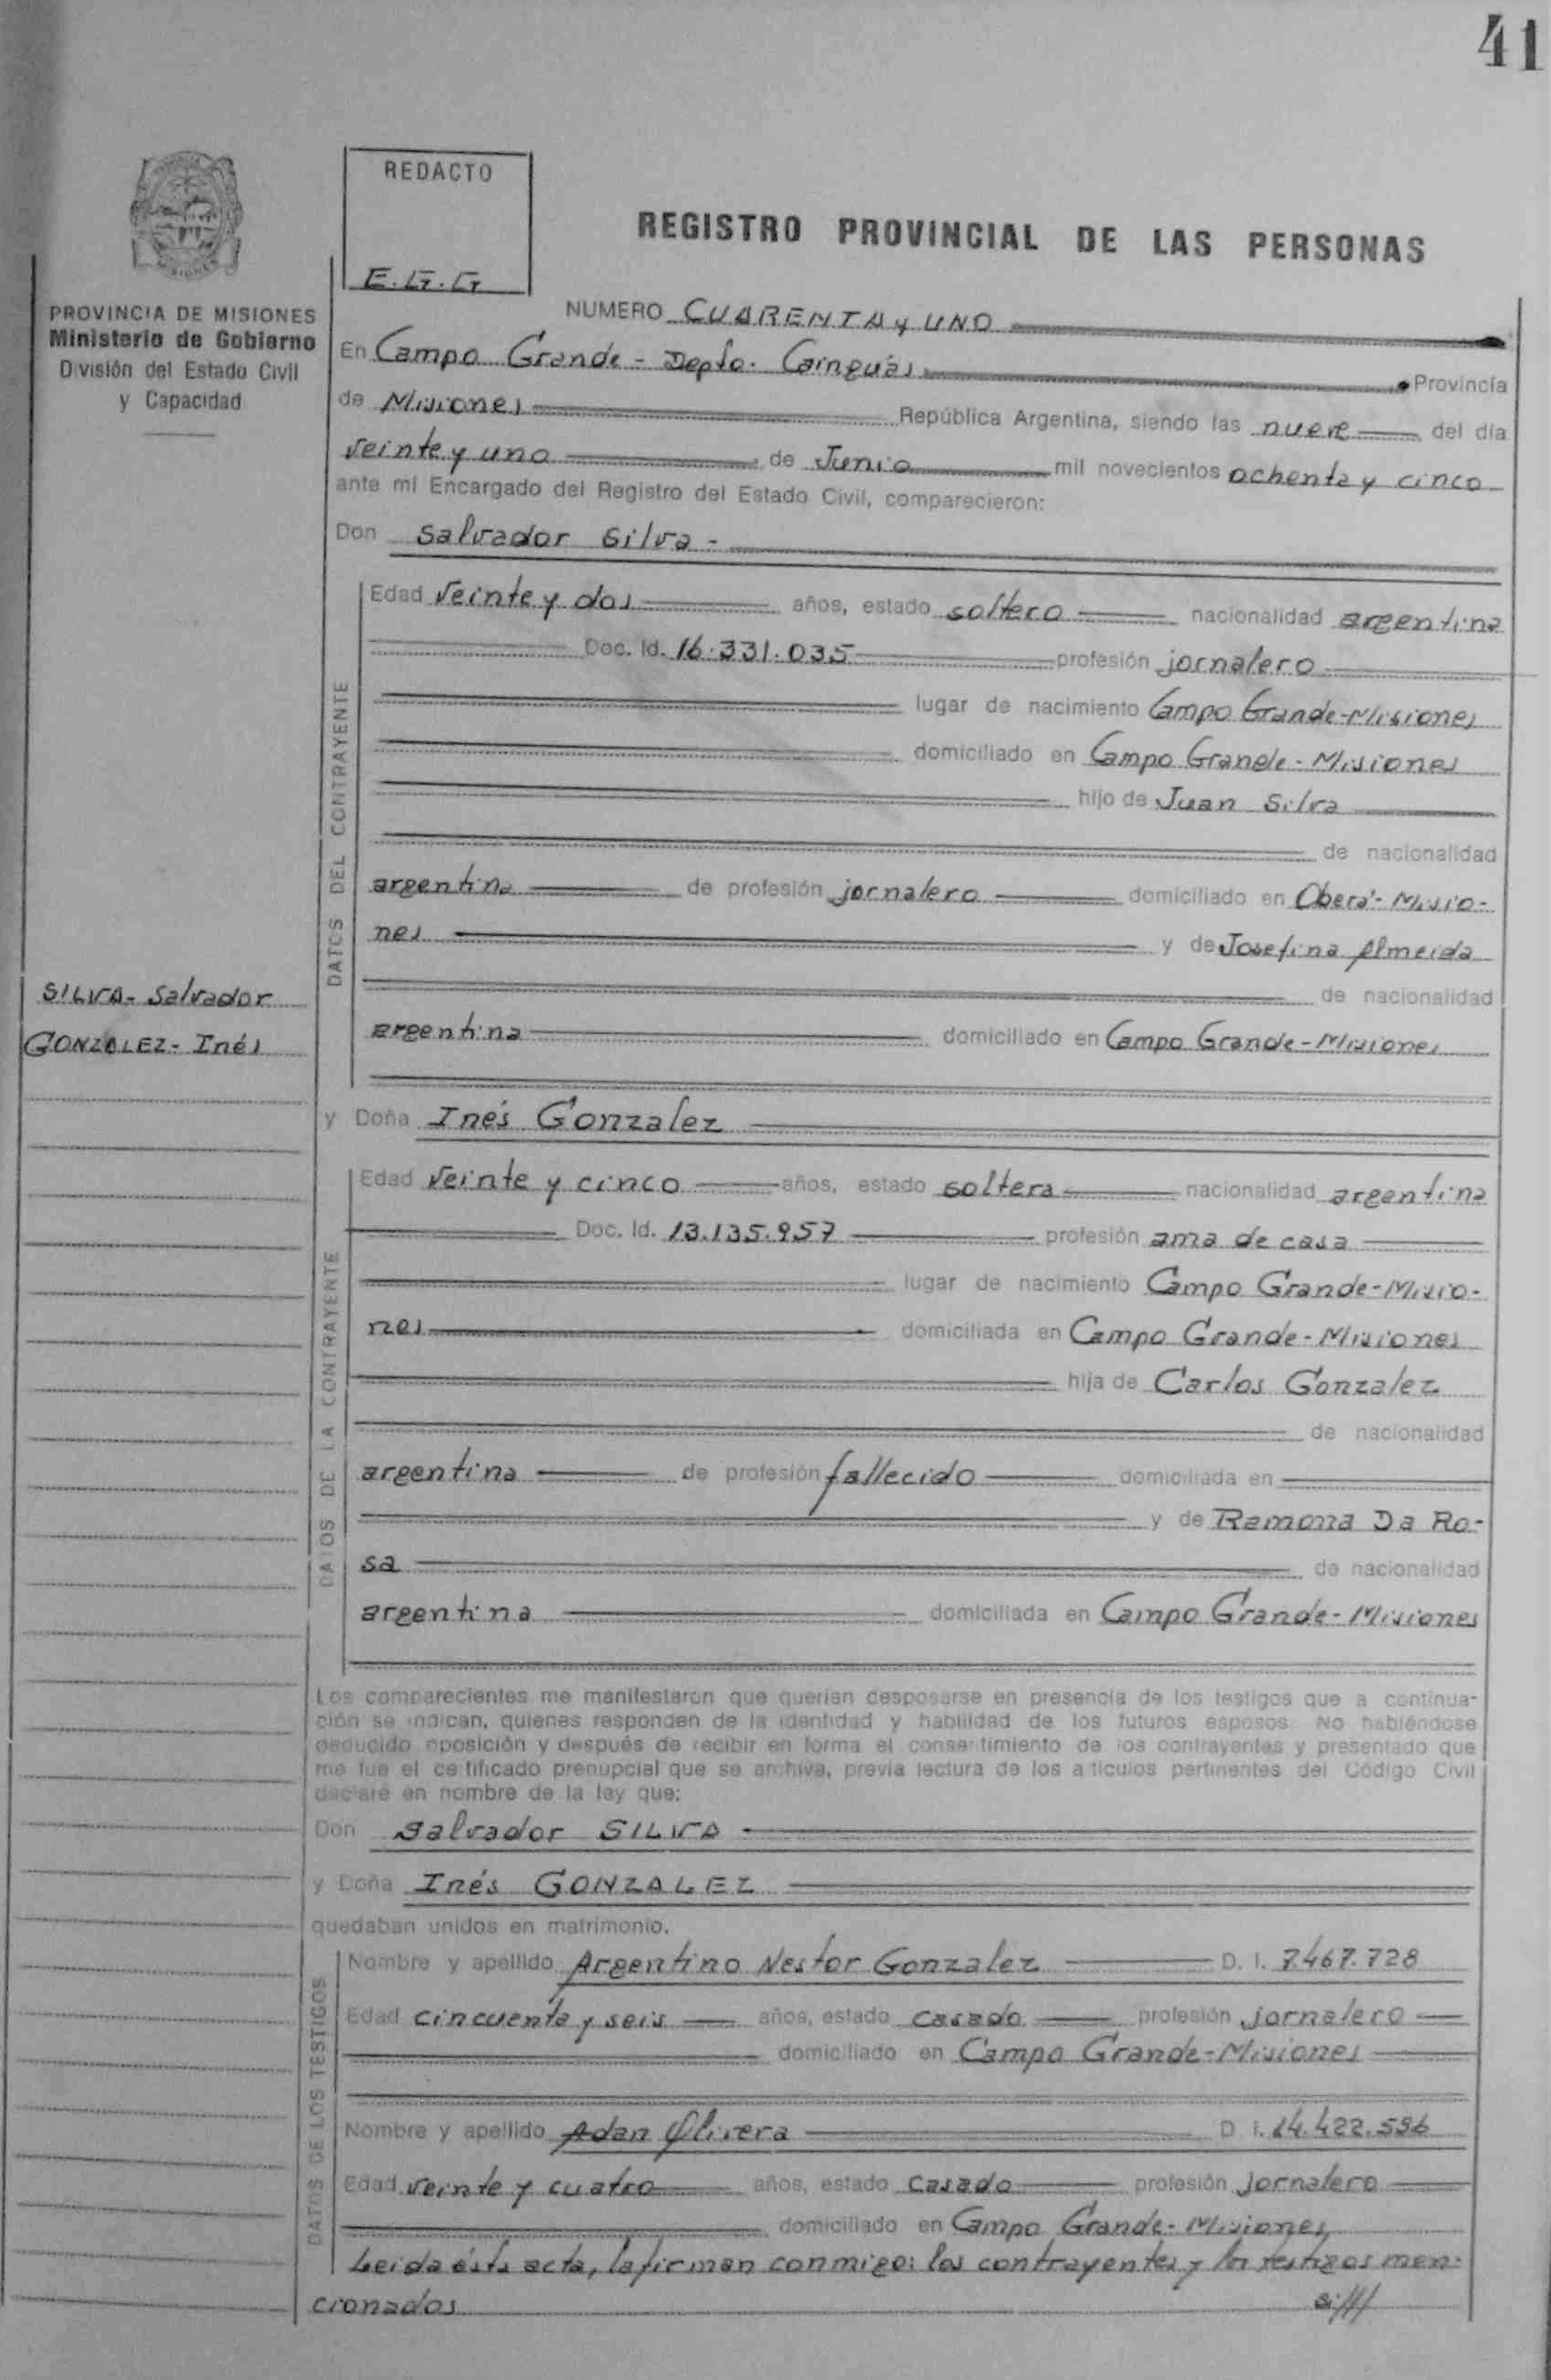 41
REDACTO
E.G.G
REGISTRO PROVINCIAL DE LAS PERSONAS
PROVINCIA DE MISIONES
Ministerio de Gobierno
División del Estado Civil
y Capacidad
NUMERO CUARENTA y UNO
En Campo Grande - Depto. Cainguás Provincia
de Misiones República Argentina, siendo las nueve del día
veinte y uno de Junio mil novecientos ochenta y cinco
ante mi Encargado del Registro del Estado Civil, comparecieron:
Don Salvador Silva -
DATOS DEL CONTRAYENTE
Edad veinte y dos años, estado soltero nacionalidad argentina
Doc. Id. 16.331.035 profesión jornalero
lugar de nacimiento Campo Grande-Misiones
domiciliado en Campo Grande - Misiones
hijo de Juan Silva
de nacionalidad
argentina de profesión jornalero domiciliado en Oberá - Misio-
nes y de Josefina Almeida
de nacionalidad
argentina domiciliado en Campo Grande-Misiones
SILVA - Salvador
GONZALEZ - Inés
y Doña Inés Gonzalez
DATOS DE LA CONTRAYENTE
Edad veinte y cinco años, estado soltera nacionalidad argentina
Doc. Id. 13.135.957 profesión ama de casa
lugar de nacimiento Campo Grande-Misio-
nes domiciliada en Campo Grande-Misiones
hija de Carlos Gonzalez
de nacionalidad
argentina de profesión fallecido domiciliada en
y de Ramona Da Ro-
sa de nacionalidad
argentina domiciliada en Campo Grande-Misiones
Los comparecientes me manifestaron que querían desposarse en presencia de los testigos que a continua-
ción se indican, quienes responden de la identidad y habilidad de los futuros esposos. No habiéndose
deducido oposición y después de recibir en forma el consentimiento de los contrayentes y presentado que
me fue el certificado prenupcial que se archiva, previa lectura de los artículos pertinentes del Código Civil
declaré en nombre de la ley que:
Don Salvador SILVA
y Doña Inés GONZALEZ
quedaban unidos en matrimonio.
DATOS DE LOS TESTIGOS
Nombre y apellido Argentino Nestor Gonzalez D. I. 7.467.728
Edad cincuenta y seis años, estado casado profesión jornalero
domiciliado en Campo Grande-Misiones
Nombre y apellido Adan Olivera D. I. 14.422.596
Edad veinte y cuatro años, estado casado profesión jornalero
domiciliado en Campo Grande - Misiones
Leida ésta acta, la firman conmigo: los contrayentes y los testigos men-
cionados si///